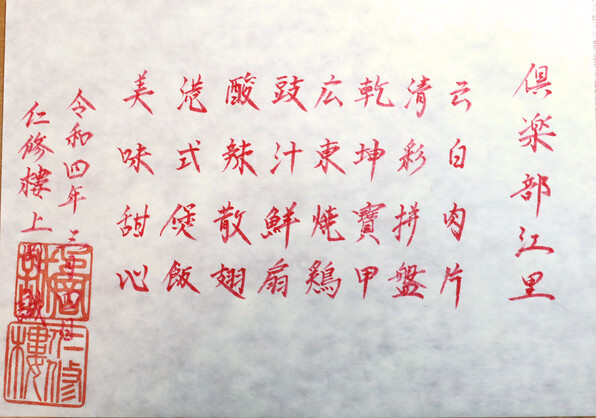 倶楽部江里
云白肉片
清彩拼盤
乾坤寶甲
広東焼鶏
豉汁鮮扇
酸辣散翅
港式煲飯
美味甜心
令和四年三月
仁修樓上